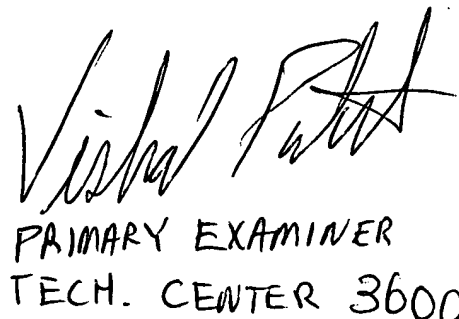 Vishal Patel
PRIMARY EXAMINER
TECH. CENTER 3600